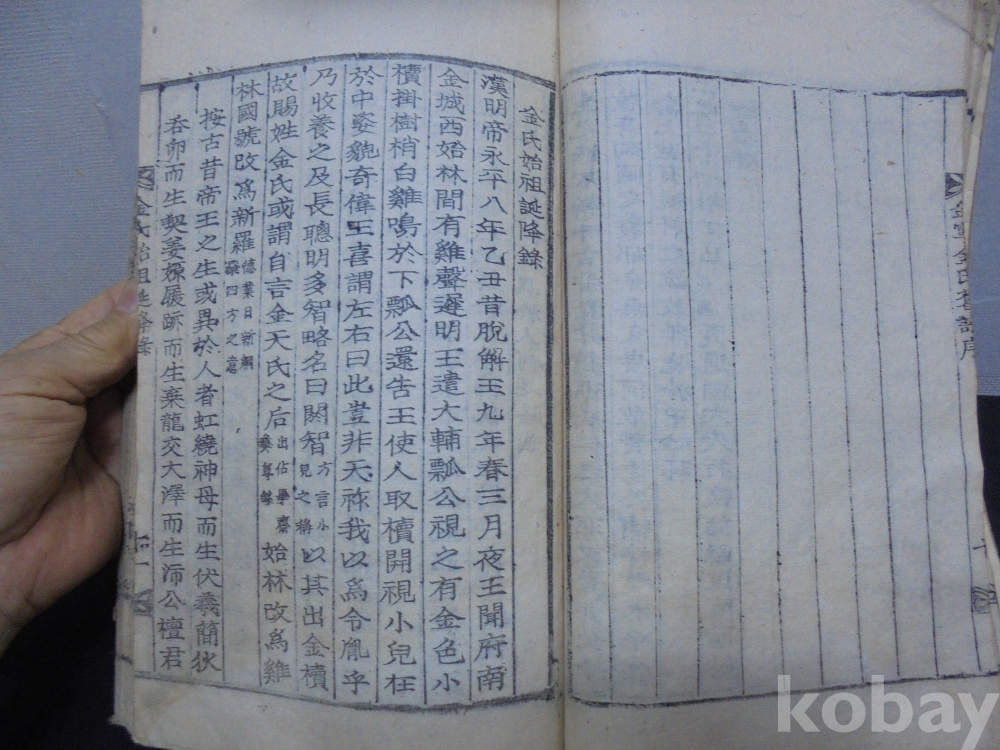 金氏始祖誕降錄
漢明帝永平八年乙丑昔脫解王九年春三月夜王聞府南
金城西始林間有雞聲遲明王遣大輔瓢公視之有金色小
櫝掛樹梢白雞鳴於下瓢公還告王使人取櫝開視小兒在
於中姿貌奇偉王喜謂左右曰此豈非天祚我以爲令胤乎
乃收養之及長聰明多智略名曰閼智方言小兒之稱以其出金櫝
故賜姓金氏或謂自言金天氏之后出佔畢齋彝尊錄始林改爲雞
林國號改爲新羅德業日新網羅四方之意
按古昔帝王之生或異於人者虹繞神母而生伏羲簡狄
呑卵而生契姜嫄履跡而生棄龍交大澤而生沛公檀君
金氏始祖誕降錄
金氏
序
kobay